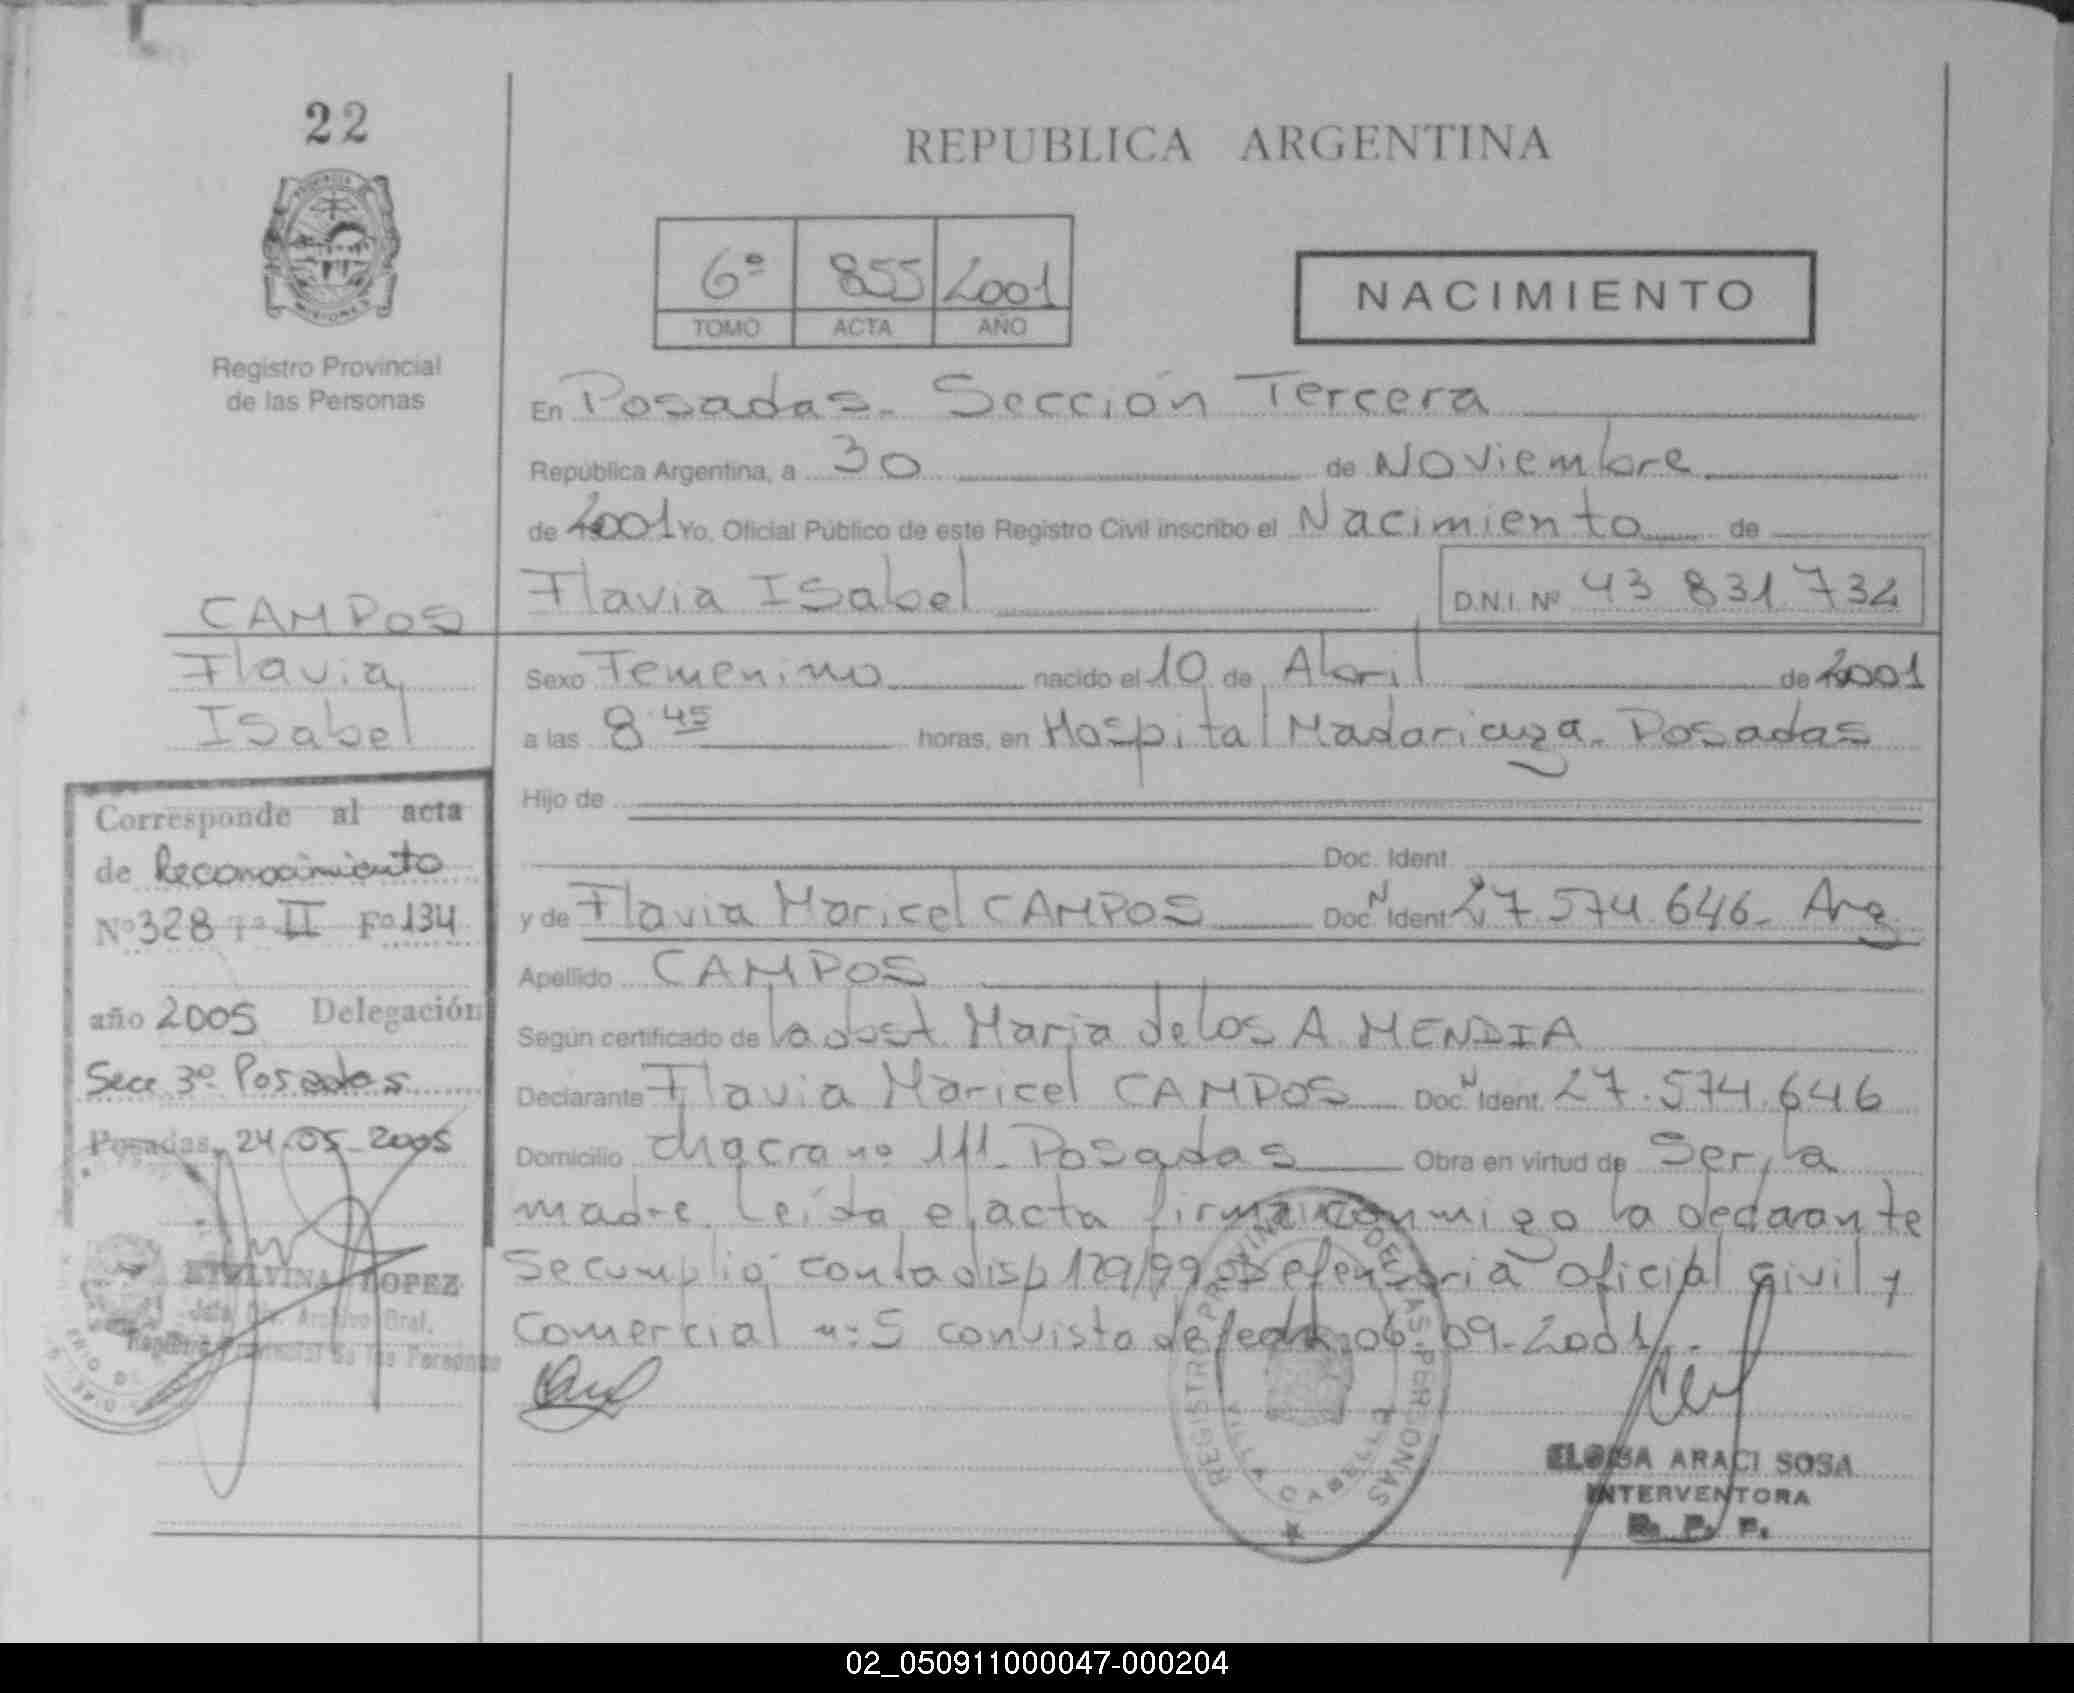 22
REPUBLICA ARGENTINA
PROVINCIA
MISIONES
Registro Provincial
de las Personas
6º 855 2001
TOMO ACTA AÑO
NACIMIENTO
En Posadas. Sección Tercera
República Argentina, a 30 de Noviembre
de 2001 Yo, Oficial Público de este Registro Civil inscribo el Nacimiento de
Flavia Isabel D.N.I. Nº 43 831 734
CAMPOS
Flavia
Isabel
Sexo Femenino nacido el 10 de Abril de 2001
a las 8 45 horas, en Hospital Madariaga. Posadas
Hijo de
Doc. Ident
y de Flavia Maricel CAMPOS Doc N Ident 27 574 646. Arg
Apellido CAMPOS
Según certificado de la obst. Maria de los A. MENDIA
Declarante Flavia Maricel CAMPOS Doc N Ident. 27.574.646
Domicilio chacra nº 111. Posadas Obra en virtud de Ser la
madre. Leída el acta firma conmigo la declarante
Se cumplió con la disp 129/99 Defensoria Oficial Civil y
Comercial nº 5 con vista de fecha 06-09-2001.
Corresponde al acta
de Reconocimiento
Nº 328 Tº II Fº 134
año 2005 Delegación
Secc 3º Posadas
Posadas, 24-05-2005
ETELVINA LOPEZ
Jefa Archivo Gral.
Registro Provincial de las Personas
REGISTRO PROVINCIAL DE LAS PERSONAS
VILLA CABELLO
ELOISA ARACI SOSA
INTERVENTORA
R. P. P.
02_050911000047-000204